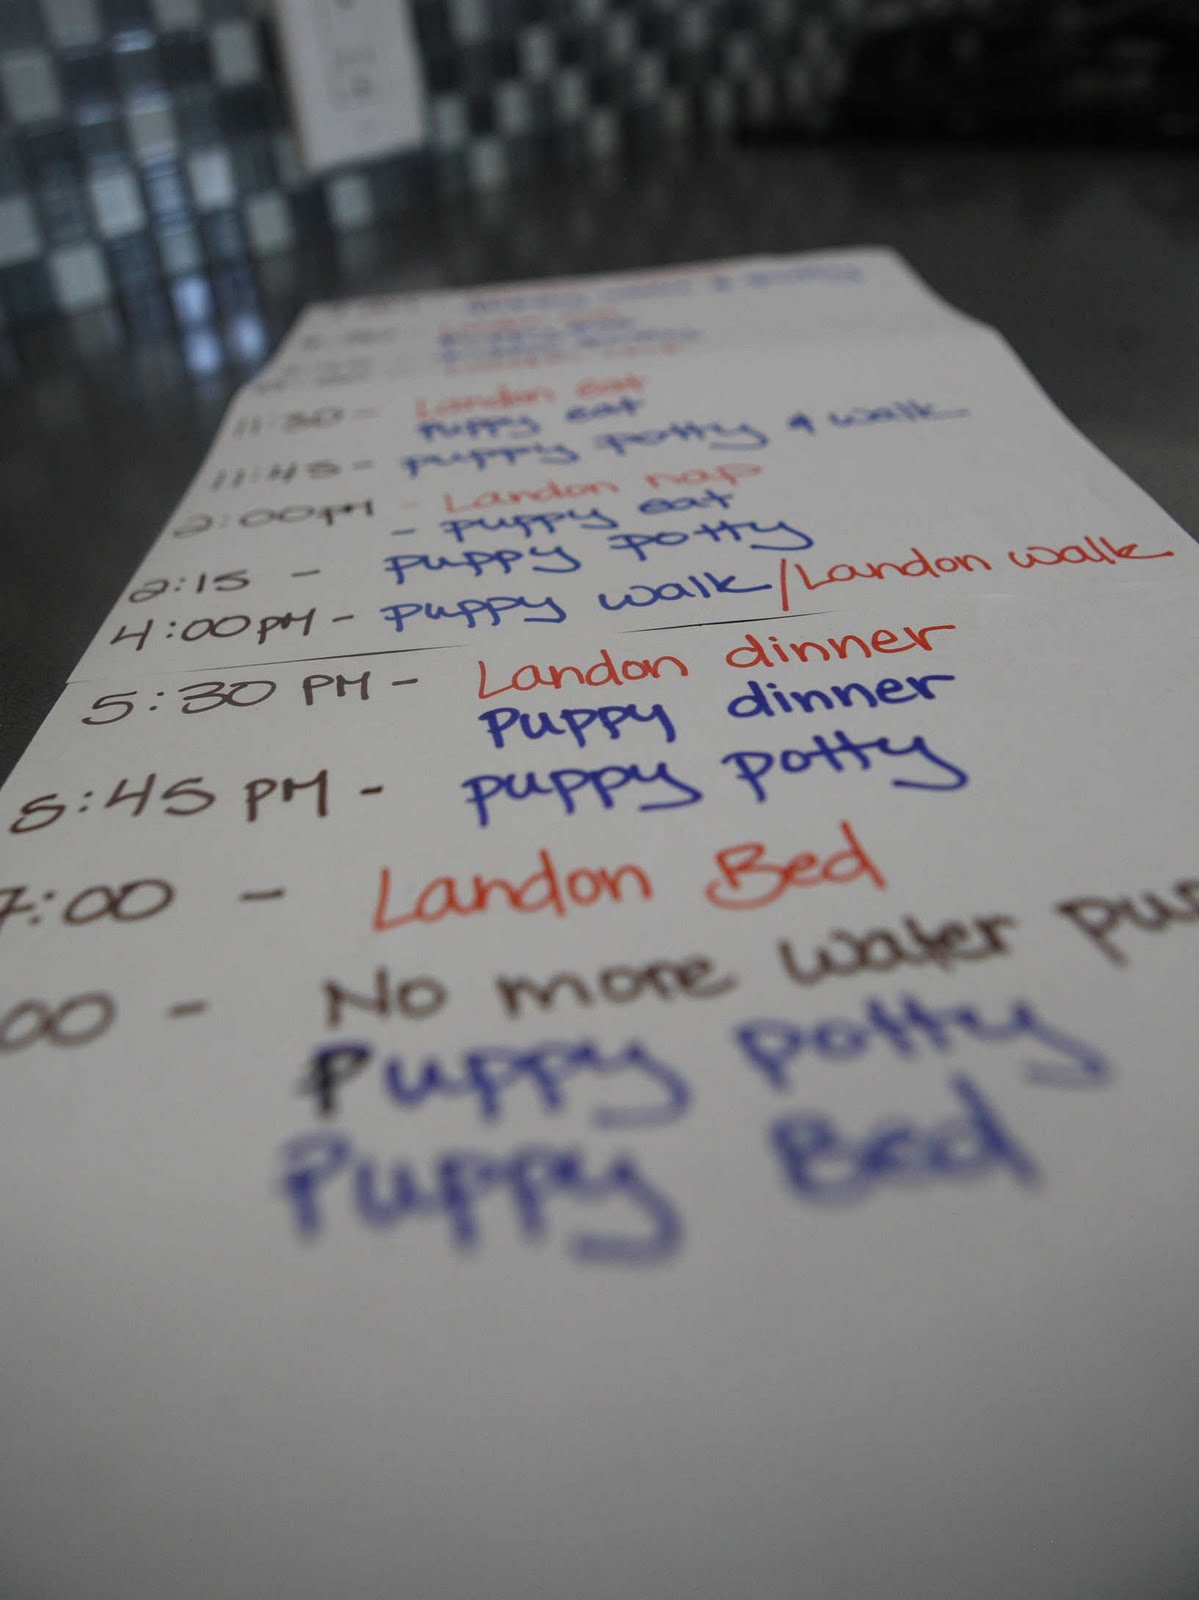 11:30 - Landon eat
puppy eat
11:45 - puppy potty & walk
2:00pm - Landon nap
- puppy eat
2:15 - puppy potty
4:00pm - puppy walk/Landon walk
5:30 PM - Landon dinner
Puppy dinner
5:45 PM - puppy potty
7:00 - Landon Bed
00 - No more water pup
Puppy potty
Puppy Bed